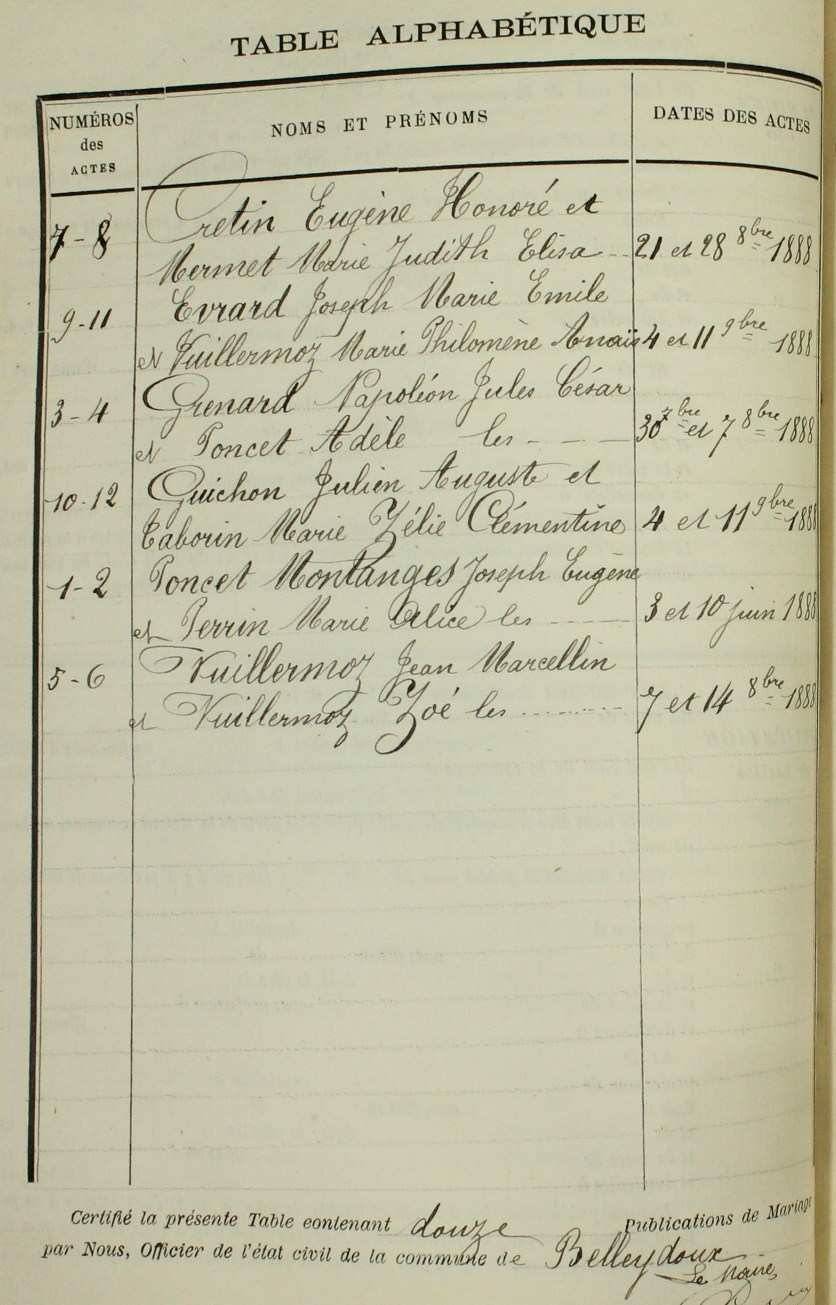 TABLE ALPHABÉTIQUE
NUMÉROS des ACTES
NOMS ET PRÉNOMS
DATES DES ACTES
Cretin Eugène Honoré et
7-8 Mermet Marie Judith Elisa 21 et 28 8bre 1888
Evrard Joseph Marie Emile
9-11 et Vuillermoz Marie Philomène Anaïs 4 et 11 9bre 1888
Grenard Napoléon Jules César
3-4 et Poncet Adèle les - - - 30 7bre et 7 8bre 1888
Guichon Julien Auguste et
10-12 Taborin Marie Zélie Clémentine 4 et 11 9bre 1888
Poncet Montanges Joseph Eugène
1-2 et Perrin Marie Alice les 3 et 10 juin 1888
Vuillermoz Jean Marcellin
5-6 et Vuillermoz Zoé les 7 et 14 8bre 1888
Certifié la présente Table contenant douze Publications de Mariage
par Nous, Officier de l'état civil de la commune de Belleydoux
Le Maire,